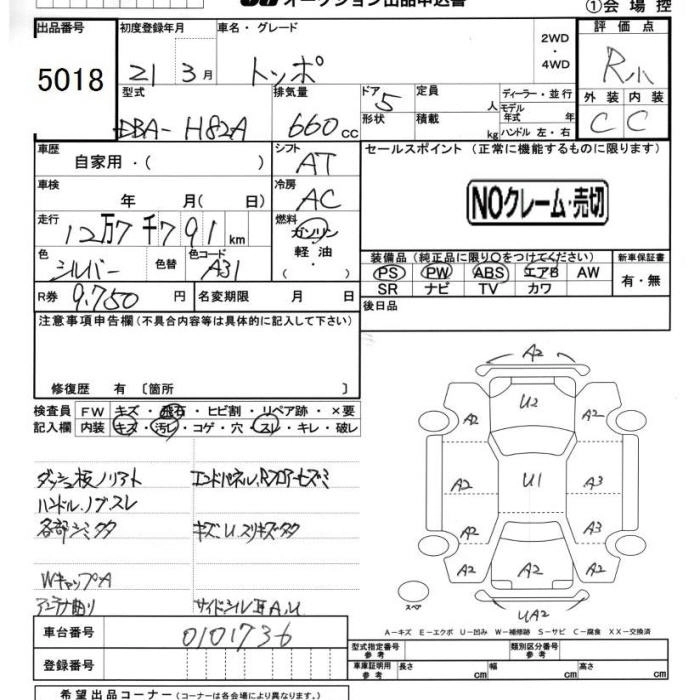 オークション出品申込書
①会場控
出品番号
5018
初度登録年月
21 3月
車名・グレード
トッポ
2WD・4WD
評価点
R小
外装 内装
C C
型式
DBA-H82A
排気量
660cc
ドア
5
形状
定員
人
積載
kg
ディーラー・並行
モデル年式 年
ハンドル 左・右
車歴
自家用・( )
シフト
AT
セールスポイント (正常に機能するものに限ります)
NOクレーム・売切
車検
年 月( 日)
冷房
AC
走行
12万7千791km
燃料
ガソリン
軽油
・( )
色
シルバー
色替
色コード
A31
装備品 (純正品に限り○をつけてください)
PS PW ABS エアB AW
SR ナビ TV カワ
新車保証書
有・無
R券 9,750円
名変期限 月 日
後日品
注意事項申告欄 (不具合内容等は具体的に記入して下さい)
修復歴 有 〔箇所 〕
検査員記入欄
FW キズ・飛石・ヒビ割・リペア跡・×要
内装 キズ・汚レ・コゲ・穴・スレ・キレ・破レ
ダッシュ板ノリアト
エンドパネル.Rフロアーヒズミ
ハンドル.ノブスレ
各部シミタタ
キズ.U.スリキズタタ
WキャップA
アンテナ曲り
サイドシル下A.U
A2
U2
A2 A2
A2 U1 A3
A2 A3
A2 A2 A2
UA2
スペア
A-キズ E-エクボ U-凹み W-補修跡 S-サビ C-腐食 XX-交換済
車台番号
0101736
登録番号
型式指定番号 参考
類別区分番号 参考
車庫証明用 参考
長さ cm 幅 cm 高さ cm
希望出品コーナー (コーナーは各会場により異なります。)